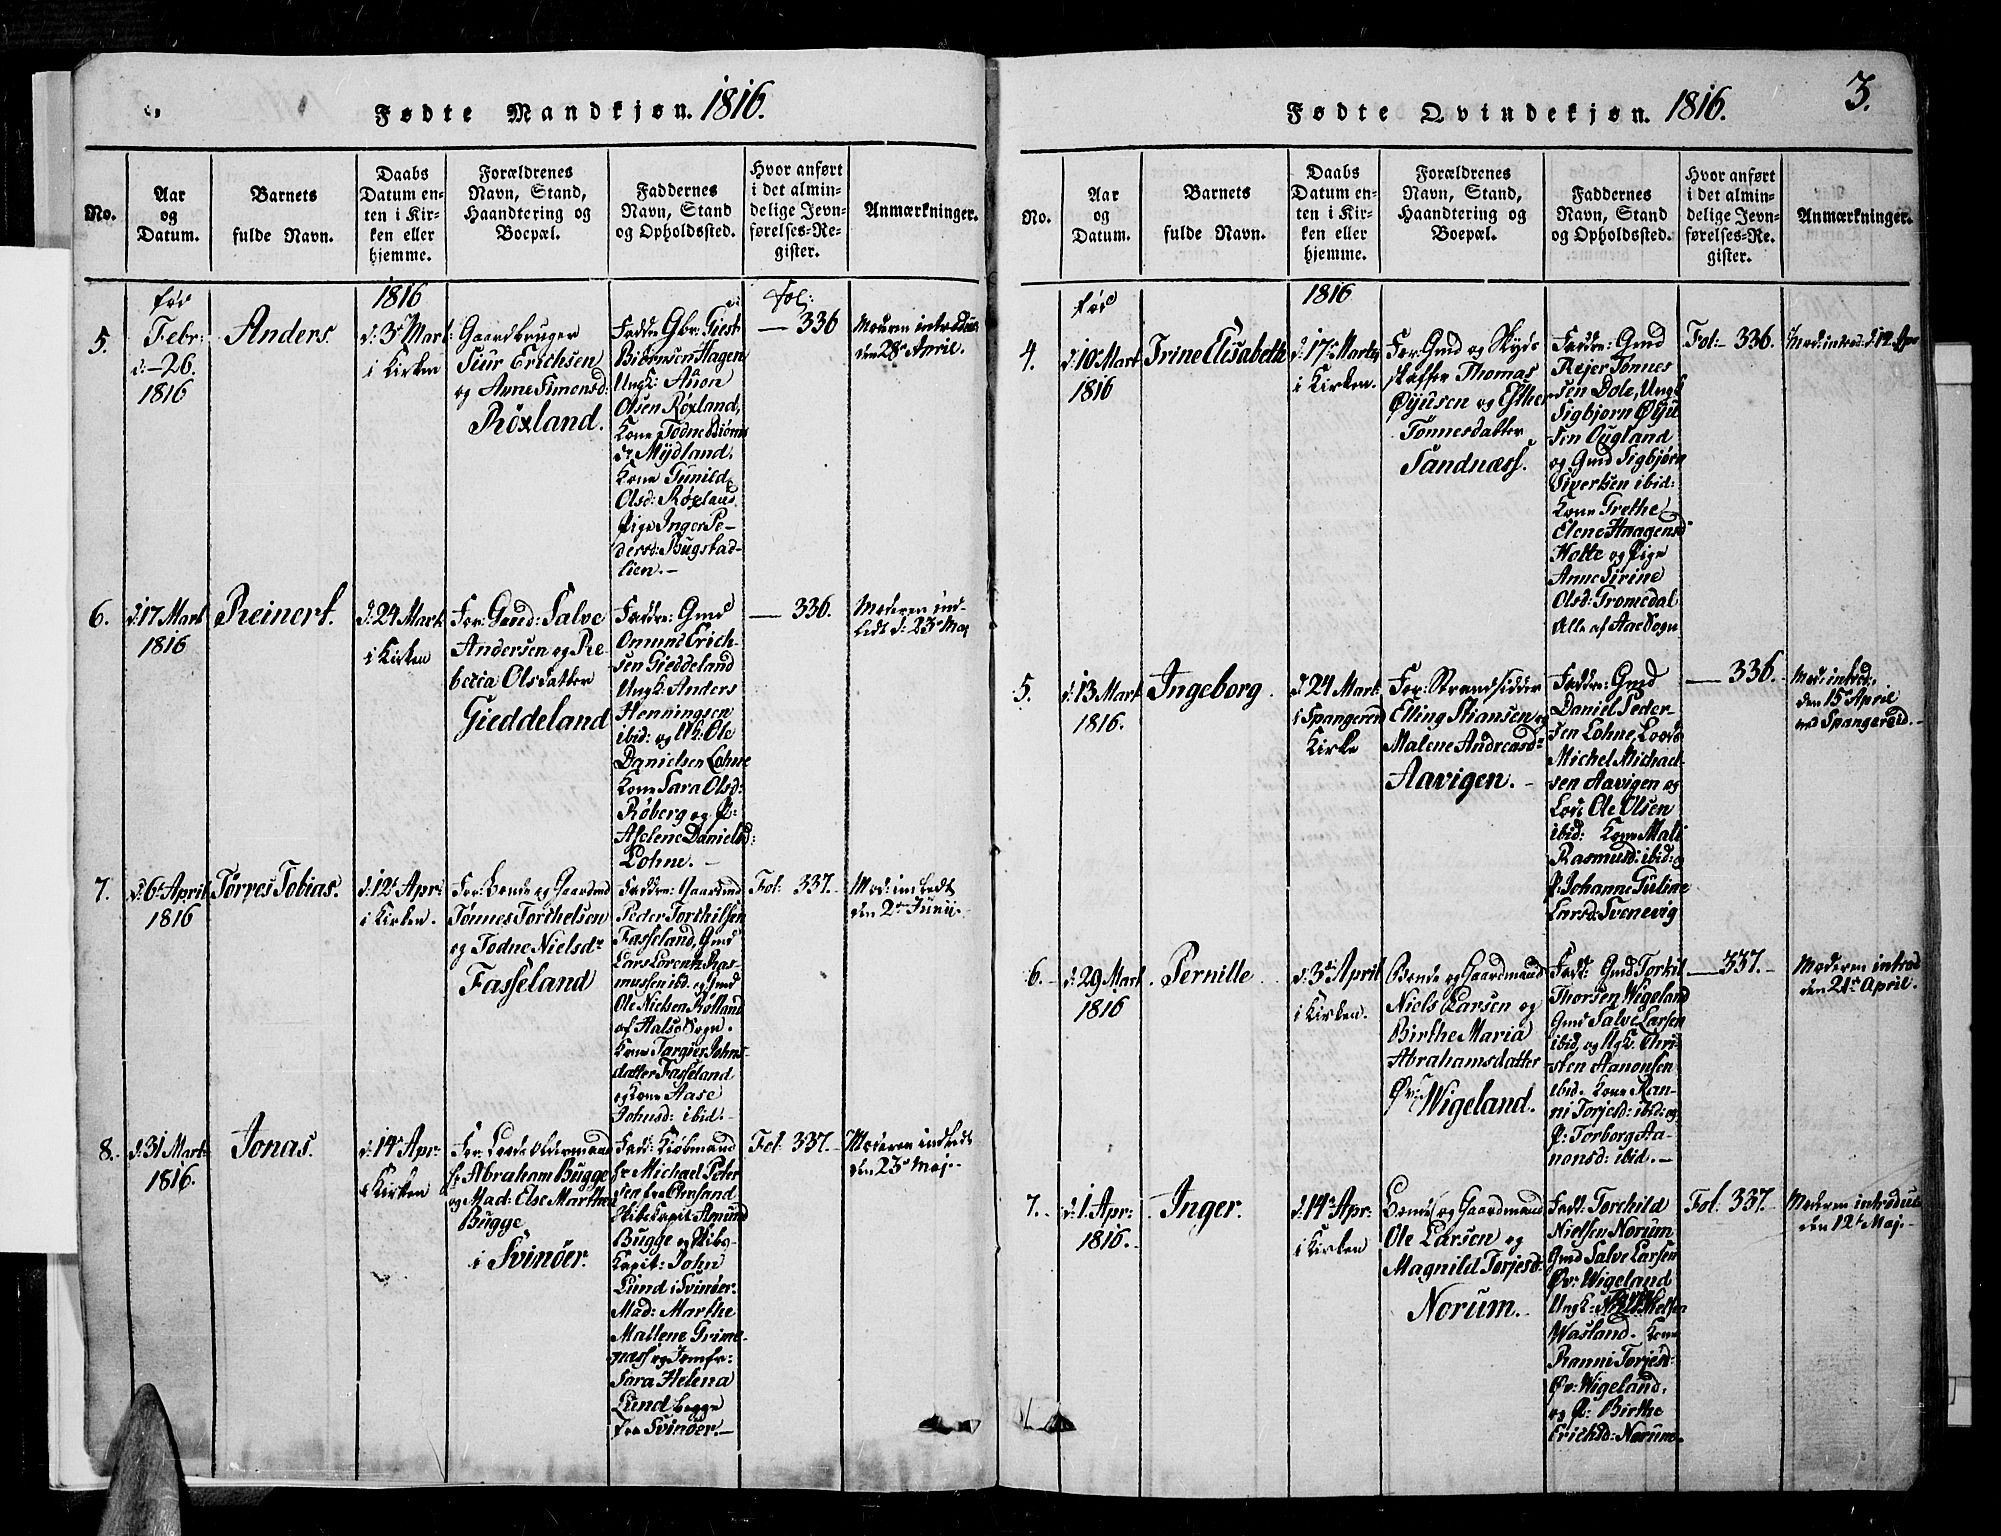 Fødte Mandkjøn. 1816.
No.
Aar
og
Datum.
Barnets
fulde Navn.
Daabs
Datum en-
ten i Kir-
ken eller
hjemme.
Forældrenes
Navn, Stand,
Haandtering og
Boepæl.
Faddernes
Navn, Stand
og Opholdssted.
Hvor anført
i det almin-
delige Jevn-
førelses-Re-
gister.
Anmærkninger.
5.
Febr:
d:-26.
1816
Anders.
1816
d:3 Mart
i Kirken
Gaardbruger
Siur Erichsen
og Anne Simonsd:
Röxland.
Fadde: Gbr: Giest
Biörnsen Hagen
Ungk: Auon
Olsen Röxland,
Kone Todne Biörns
d: Mydland,
Kone Gunild
Olsd: Röxland
Pige Inger Pe-
dersd: Bugstad-
lien.-
Fol:
— 336
Moderen introduc
den 28 April.
6.
d:17 Mart
1816
Reinert.
d:24 Mart
i Kirken
For: Gmd: Salve
Andersen og Re-
becca Olsdatter
Gieddeland
Faddre: Gmd
Ommund Erich-
sen Gieddeland
Ungk: Anders
Henningsen
ibid: og Uk: Ole
Danielsen Lohne
Kone Sara Olsd:
Röberg og P:
Aselene Danielsd:
Lohne.-
— 336.
Moderen ind-
ledt d: 23 Maj
7.
d:6 April
1816
Törres Tobias.
d:12 Apr:
i Kirken.
For: Bonde og Gaardmd
Tönnes Torchelsen
og Todne Nielsdr
Fasseland
Faddre: Gaardmd
Peder Torchilsen
Fasseland, Gmd
Lars Lorentz Ras-
mussen ibid. og Gmd
Ole Nielsen Rölland
af Halse Sogn.
Kone Targier Johns-
datter Fasseland
og Kone Aase
Johnsd: ibid.-
Fol: 337.-
Mod: indledt
den 2 Junii.-
8.-
d:31 Mart
1816.
Jonas.
d:14 Apr:
i Kirken
For: Lods Oldermand
Hr Abraham Bugge
og Mad: Else Marthea
Bugge
i Svinöer.
Fadd: Kiöbmand
Hr Michael Peter
sen fra Crnsand
Skibs Kapit Amund
Bugge og Skibs-
Kapit: John
Lund i Svinöer.
Mad: Marthe
Mallene Grime-
næss og Jomfr:
Sara Helena
Lund begge
fra Svinöer.-
Fol: 337.-
Moderen indledt
den 23 Maj.-
Fødte Qvindekjøn. 1816.
3.
No.
Aar
og
Datum.
Barnets
fulde Navn.
Daabs
Datum en-
ten i Kir-
ken eller
hjemme.
Forældrenes
Navn, Stand,
Haandtering og
Boepæl.
Faddernes
Navn, Stand
og Opholdssted.
Hvor anført
i det almin-
delige Jevn-
førelses-Re-
gister.
Anmærkninger.
4.
d:10 Mart
1816
Trine Elisabeth
1816
d:17 Martz
i Kirken.
For: Gmd og Skyds
skaffer Thomas
Öyusen og Esther
Tönnesdatter
Sandnæss.
Faddre: Gmd
Rejer Tönnes
sen Dole, Ungk
Sigbjörn Öyu
sen Ougland
og Gmd Sigbjörn
Sivertsen ibid:
Kone Grethe
Elene Aaagensd
Holte og Pige
Anne Sirine
Olsd: Tromsdal
Alle af Aae Sogn
Fol:- 336.
Mod: introd: d:12 Apr
5.
d:13 Mart
1816.
Ingeborg.
d:24 Mart.
i Spangereid
Kirke
For: Strandsidder
Elling Stiansen og
Malene Andreasdr
Aavigen.-
Faddre: Gmd
Daniel Peder-
sen Lohne, Lods
Michel Michael-
sen Aavigen og
Lods Ole Olsen
ibid: Kone Mali
Rasmusd: ibid: og
P: Johanne Guline
Larsd: Svenevig
— 336.
Mod: introd.
den 15 April
ved Spangereid.-
6.-
d:29 Mart.
1816
Pernille
d:3 April
i Kirken.
Bonde og Gaardmand
Niels Larsen og
Birthe Maria
Abrahamsdatter
Öv: Wigeland.
Fadd: Gmd Torkil
Thorsen Wigeland
Gmd Salve Larsen
ibid, og Ugk. Chri-
sten Aanonsen
ibid. Kone Ran-
ni Torjesd: ibid: og
P: Torborg Aa-
nonsd: ibid.-
— 337.-
Moderen introd
den 21 April.
7.-
d:1 Apr:
1816.-
Inger.
d:14 Apr:
i Kirken
Bonde og Gaardmand
Ole Larsen og
Magnild Torjesd:
Norum.-
Fadd: Torchild
Nielsen Norum
Gmd Salve Larsen
Öv: Wigeland
Ungk:
Wasland. Kone
Ranni Torjesd:
Öv: Wigeland,
og P: Birthe
Erichsd: Norum.
Fol. 337.-
Moderen introduc
den 12 Maj.-